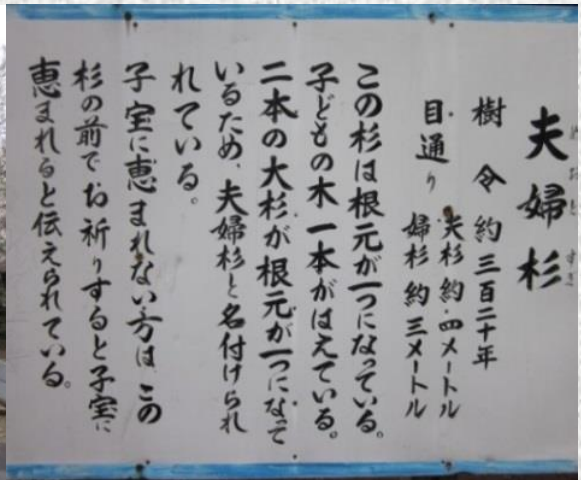 夫婦杉
樹令約三百二十年
目通り
夫杉約四メートル
婦杉約三メートル
この杉は根元が一つになっている。
子どもの木一本がはえている。
二本の大杉が根元が一つになって
いるため、夫婦杉と名付けられ
れている。
子宝に恵まれない方は、この
杉の前でお祈りすると子宝に
恵まれると伝えられている。